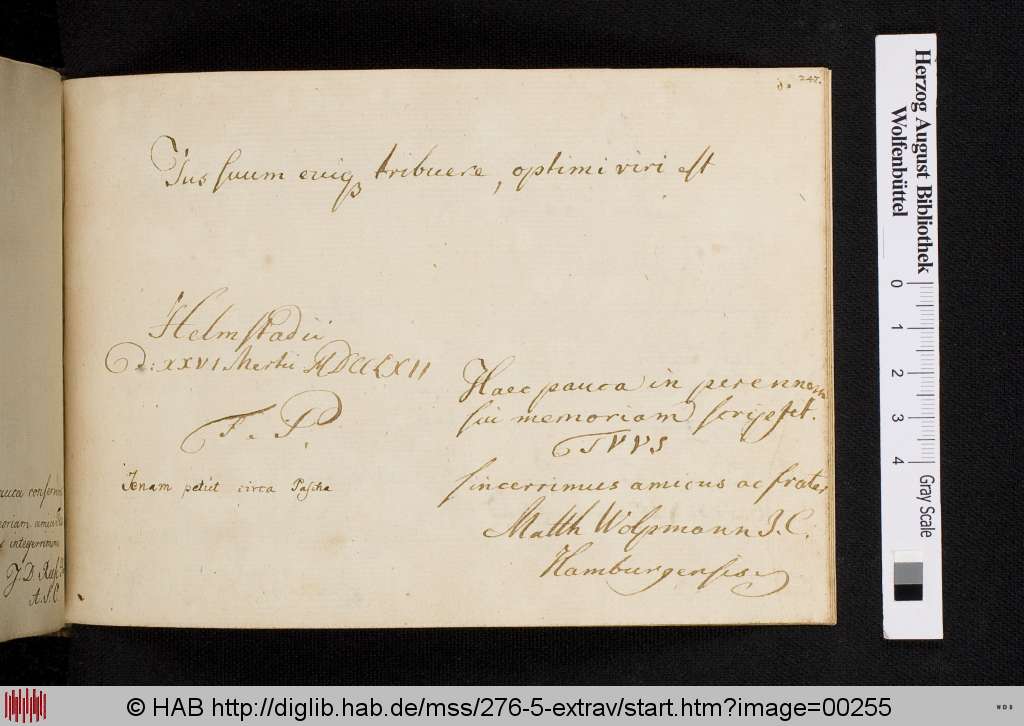 247.
Jus suum cuiq tribuere, optimi viri est
Helmstadii
D: XXVI Martii MDCCLXII
F. P.
Jenam petiit circa Pascha
Haec pauca in perennem
sui memoriam scripsit.
TVVS
sincerrimus amicus ac frater
Matth Wolpmann J. C.
Hamburgensis
integerrimum
J. D.
A. S. C.
Herzog August Bibliothek
Wolfenbüttel
0 1 2 3 4
Gray Scale
© HAB http://diglib.hab.de/mss/276-5-extrav/start.htm?image=00255
WDB